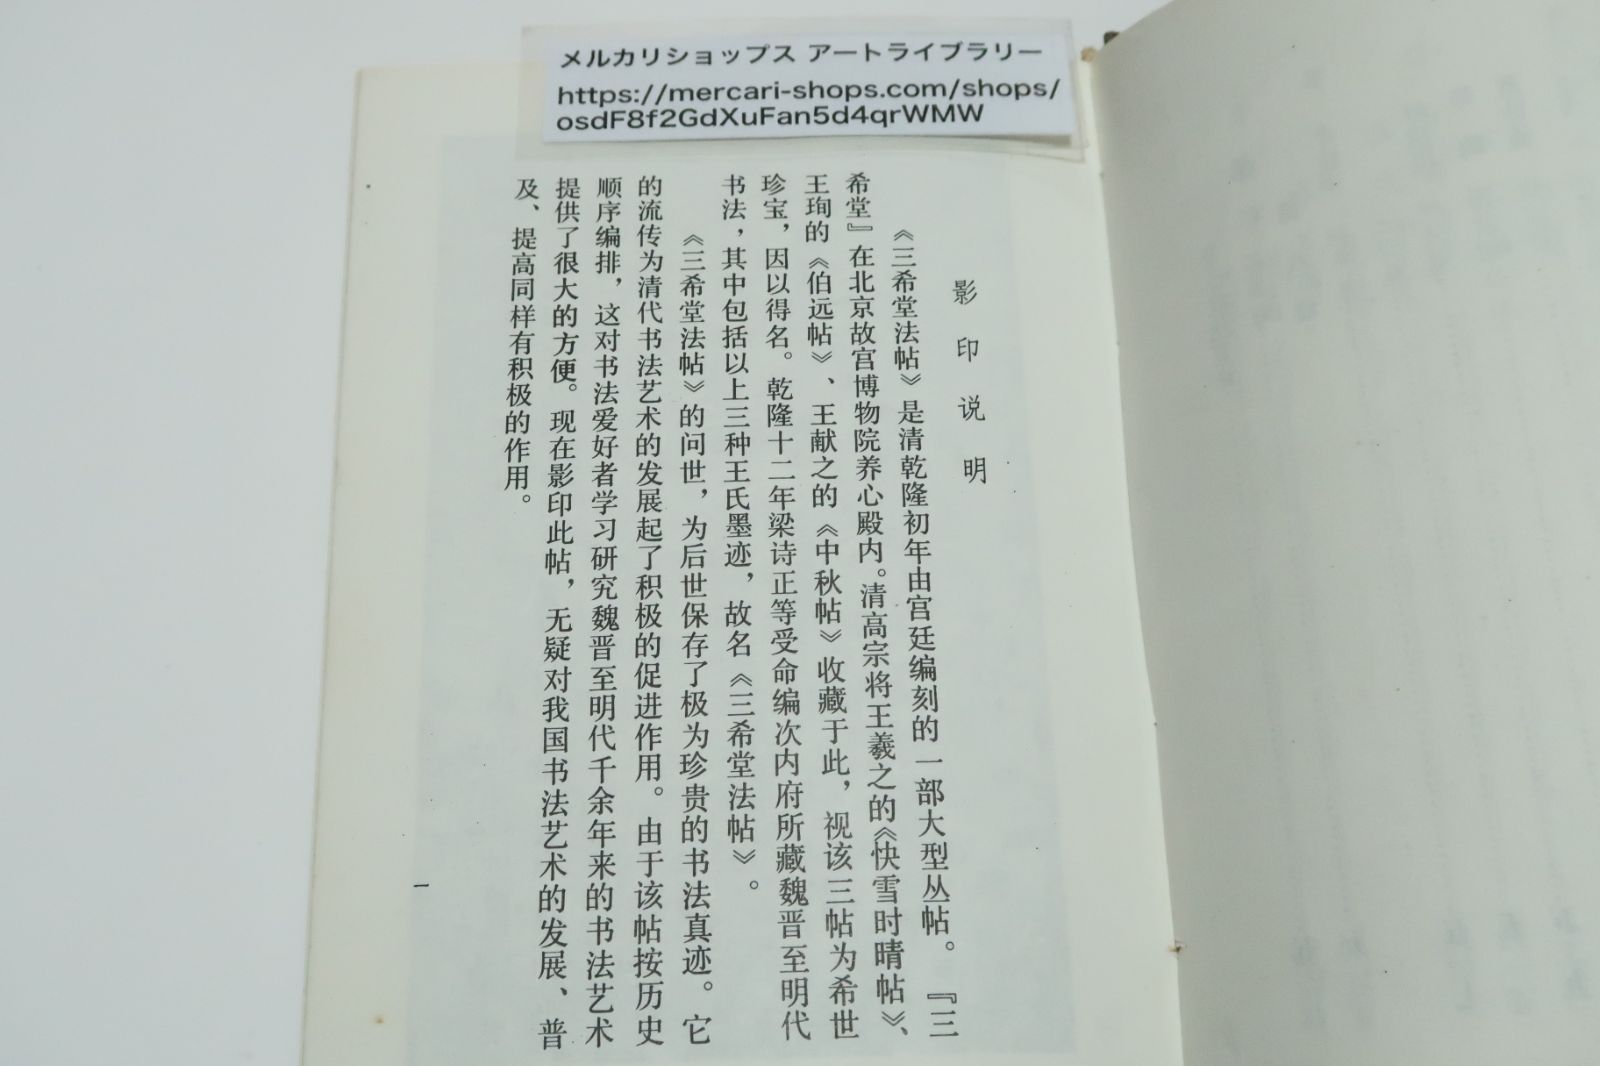 メルカリショップス アートライブラリー
https://mercari-shops.com/shops/
osdF8f2GdXuFan5d4qrWMW
影印说明
《三希堂法帖》是清乾隆初年由宫廷编刻的一部大型丛帖。『三
希堂』在北京故宫博物院养心殿内。清高宗将王羲之的《快雪时晴帖》、
王珣的《伯远帖》、王献之的《中秋帖》收藏于此，视该三帖为希世
珍宝，因以得名。乾隆十二年梁诗正等受命编次内府所藏魏晋至明代
书法，其中包括以上三种王氏墨迹，故名《三希堂法帖》。
《三希堂法帖》的问世，为后世保存了极为珍贵的书法真迹。它
的流传为清代书法艺术的发展起了积极的促进作用。由于该帖按历史
顺序编排，这对书法爱好者学习研究魏晋至明代千余年来的书法艺术
提供了很大的方便。现在影印此帖，无疑对我国书法艺术的发展、普
及、提高同样有积极的作用。
一